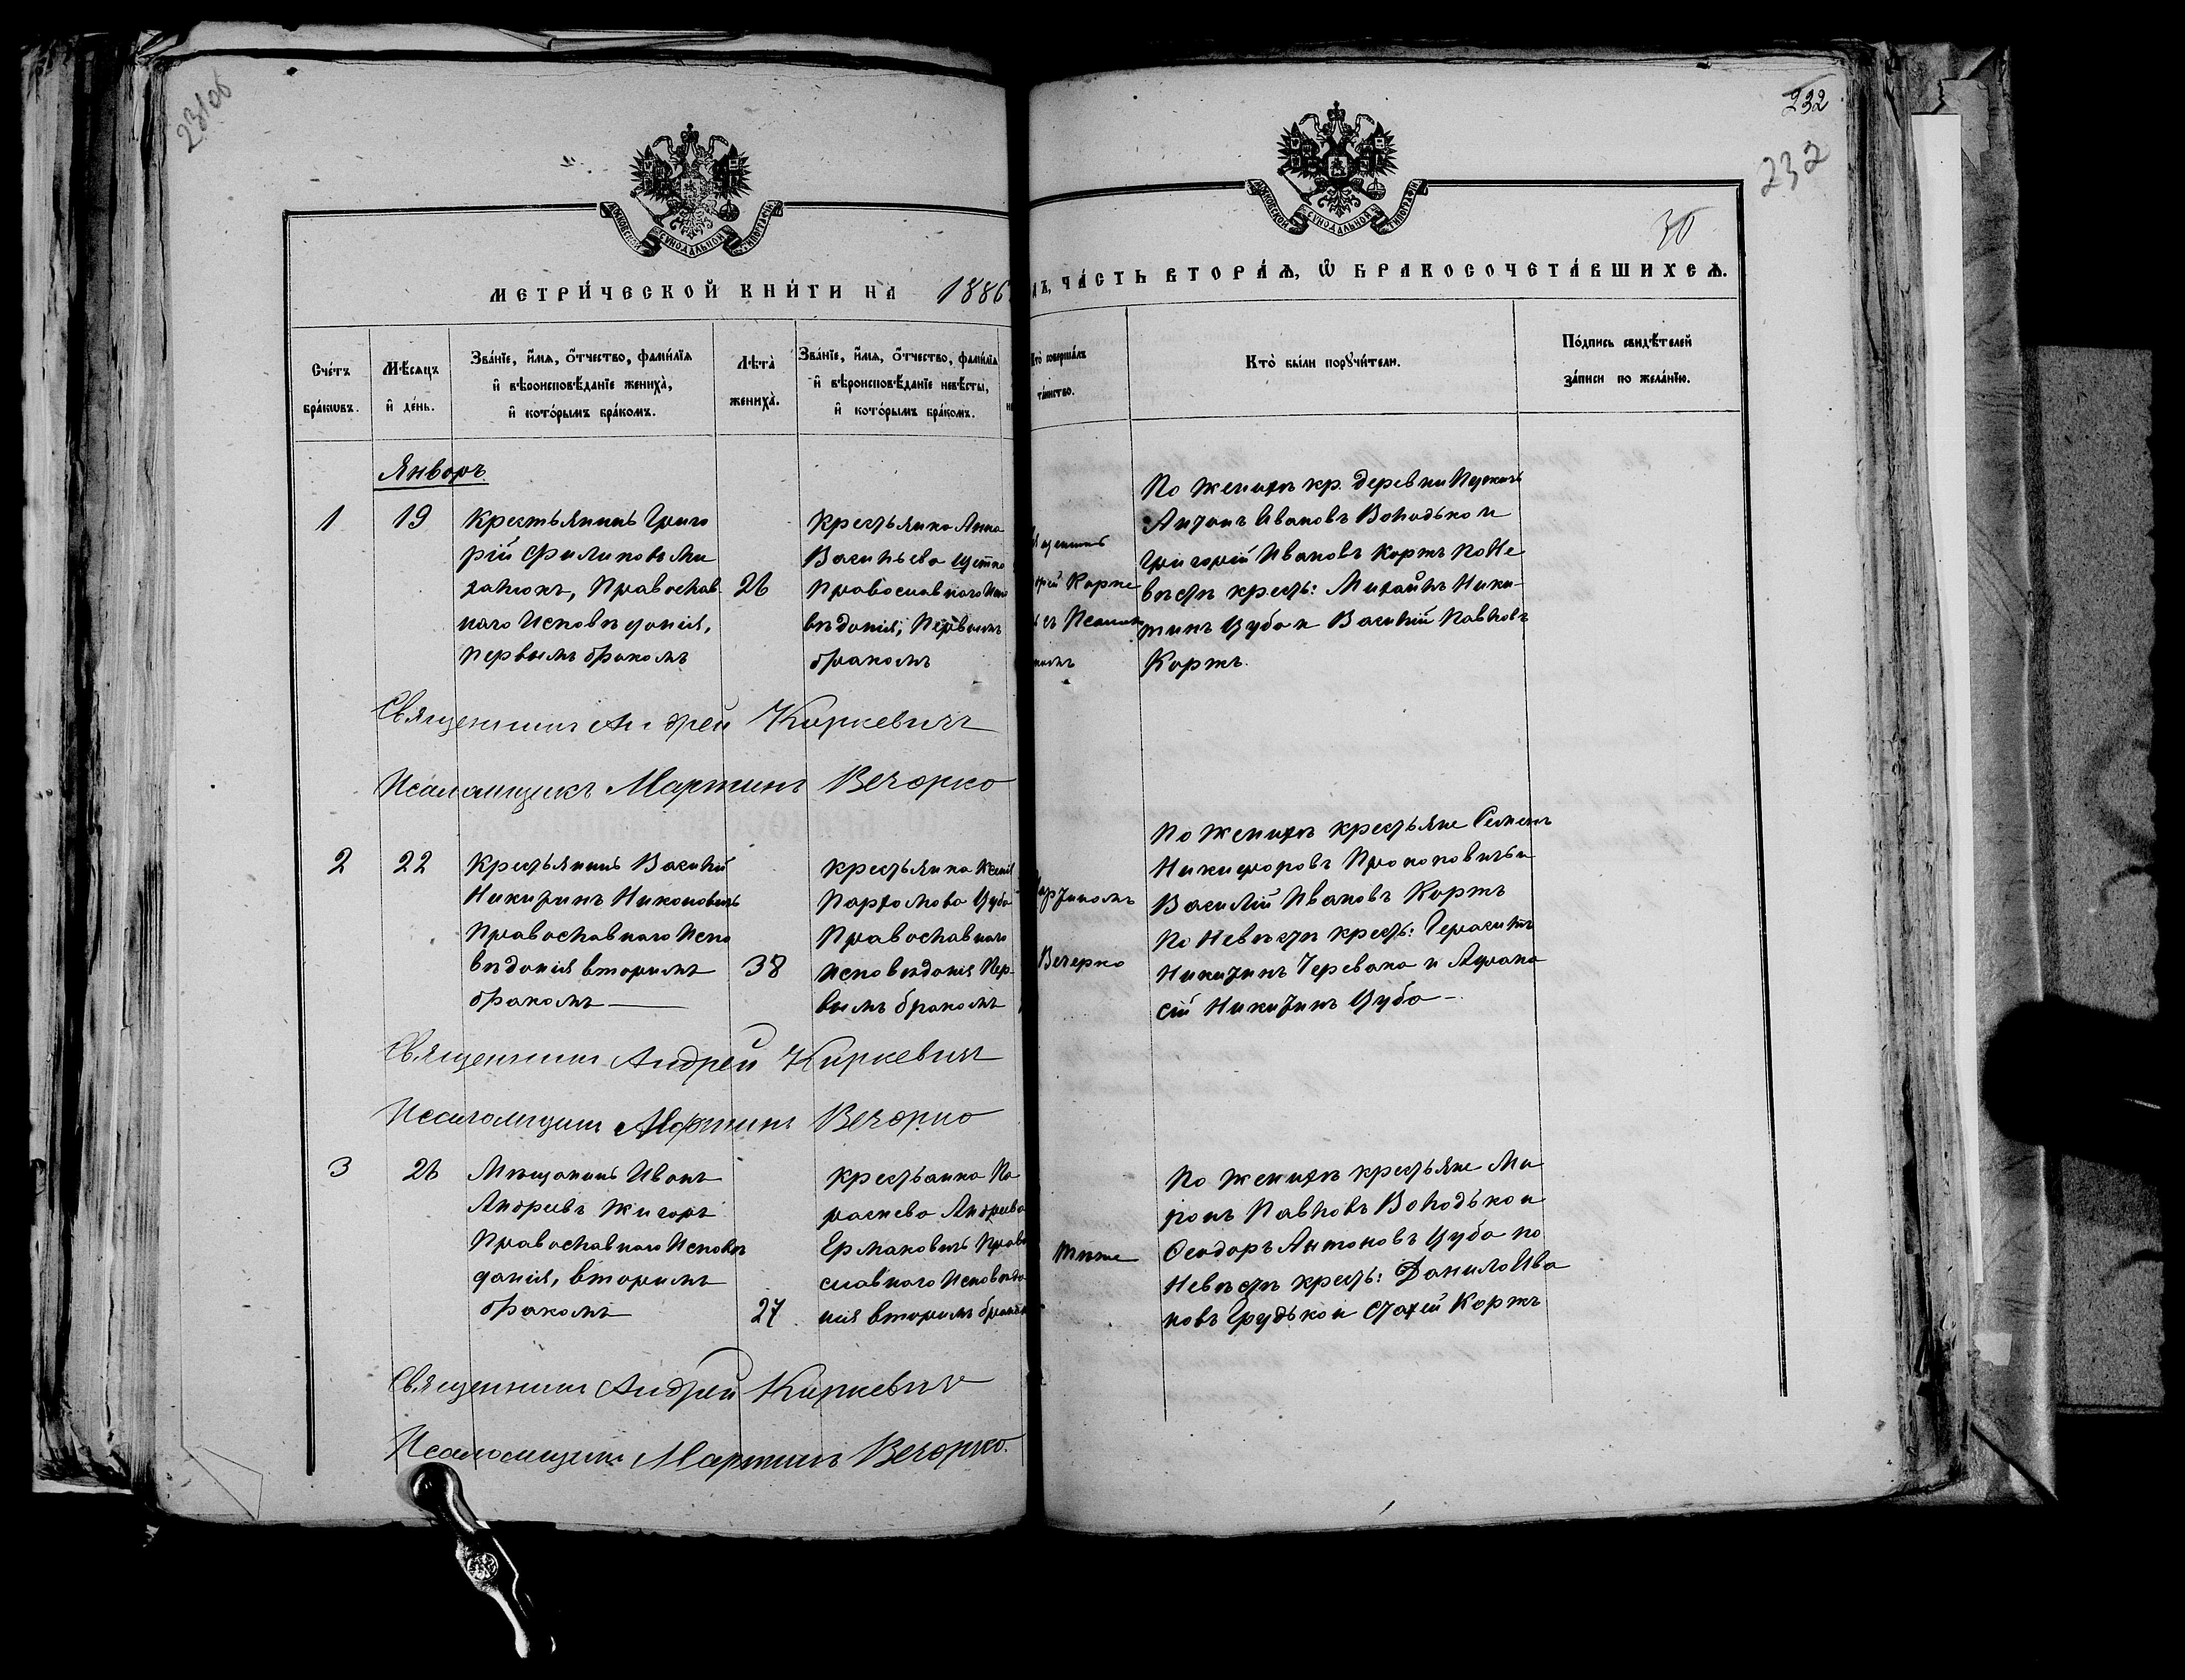 231об
232
232
30
МОСКОВСКОЙ СѴНОДАЛЬНОЙ ТИПОГРАФІИ
МОСКОВСКОЙ СѴНОДАЛЬНОЙ ТИПОГРАФІИ
МЕТРИ́ЧЕСКОЙ КНИ́ГИ НА 1886
ЧА́СТЬ ВТОРА́Ѧ, Ѽ БРАКОСОЧЕТА́ВШИХСѦ.
Сче́тъ
бра́кѡвъ.
Мѣ́сяцъ
и҆ де́нь.
Зва́нїе, и҆́мѧ, ѻ҆́тчество, фами́лїѧ
и҆ вѣроисповѣ́данїе жениха̀,
и҆ кото́рымъ бра́комъ.
Лѣ́та
жениха̀.
Зва́нїе, и҆́мѧ, ѻ҆́тчество, фами́лїѧ
и҆ вѣроисповѣ́данїе невѣ́сты,
и҆ кото́рымъ бра́комъ.
Кто̀ соверша́лъ
та́инство.
Кто̀ бы́ли порꙋчи́тели.
По́дпись свидѣ́телей
за́писи по жела́нїю.
Январь
1
19
Крестьянинъ Григо
рій Филиповъ Ми
халюкъ, Православ
наго Исповѣданія,
первымъ бракомъ
26
Крестьянка Анна
Васильева
Православнаго Испо
вѣданія, Первымъ
бракомъ
По Женихѣ кр. деревни
Антонъ Ивановъ Володько и
Григорій Ивановъ Коржъ По Не
вѣстѣ крест: Михаилъ Ники-
тинъ Цуба и Василій Павловъ
Коржъ.
Священникъ Андрей Киркевичъ
Псаломщикъ Мартинъ Вечорко
2
22
Крестьянинъ Василій
Никитинъ Никоновичъ
Православнаго Испо
вѣданія вторымъ
бракомъ
38
Крестьянка
Цуба
Православнаго
Исповѣданія Пер-
вымъ бракомъ
Вечерко
По Женихѣ крестьяне Семенъ
Никифоровъ Прокоповичъ и
Василій Ивановъ Коржъ
По Невѣстѣ крест: Герасимъ
Никитинъ Черевака и Афана
сій Никитинъ Цуба
Священникъ Андрей Киркевичъ
Псаломщикъ Мартинъ Вечорко
3
26
Мѣщанинъ Иванъ
Андреевъ Жигоръ
Православнаго Исповѣ
данія, вторымъ
бракомъ
27
Крестьянка Па
раскева Андреева
Ермаковичъ Право
славнаго Исповѣда
нія вторымъ бракомъ
Тѣже
По Женихѣ крестьяне Ми
ронъ Павловъ Володько и
Ѳеодоръ Антоновъ Цуба по
Невѣстѣ крест: Данило Ива
новъ Грудько и Стахей Коржъ
Священникъ Андрей Киркевичъ
Псаломщикъ Мартинъ Вечорко.